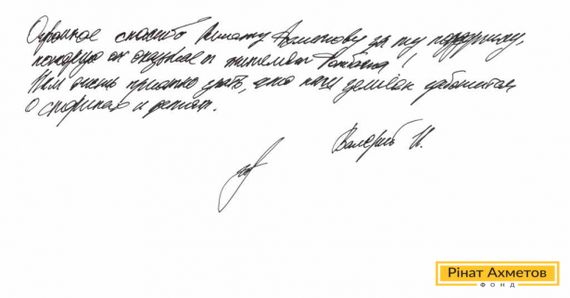 Огромное спасибо Ринату Ахметову за ту поддержку,
которую он оказывает жителям Донбасса!
Нам очень приятно знать, что наш земляк заботится
о стариках и детях.
Валерий И.
Рінат Ахметов
ФОНД